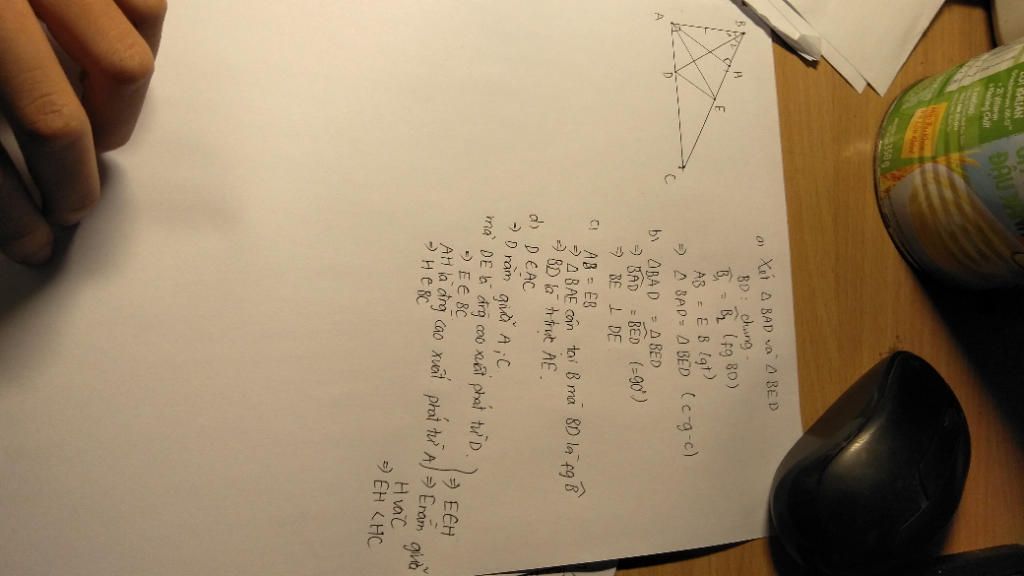 A
B
H
D
E
C
a) Xét △BAD và △BED
BD: chung.
B̂₁ = B̂₂ (pg BD)
AB = EB (gt)
⇒ △BAD = △BED (c-g-c)
b) △BAD = △BED
⇒ BAD = BED (=90°)
⇒ BE ⊥ DE
c) AB = EB
⇒ △BAE cân tại B mà BD là pg B̂
⇒ BD là t-trực AE.
d) D ∈ AC
⇒ D nằm giữa A; C
mà DE là đg cao xuất phát từ D.
⇒ E ∈ BC
AH là đg cao xuất phát từ A
⇒ H ∈ BC
⇒ E nằm giữa
H và C
⇒ EH < HC
ĐẬU